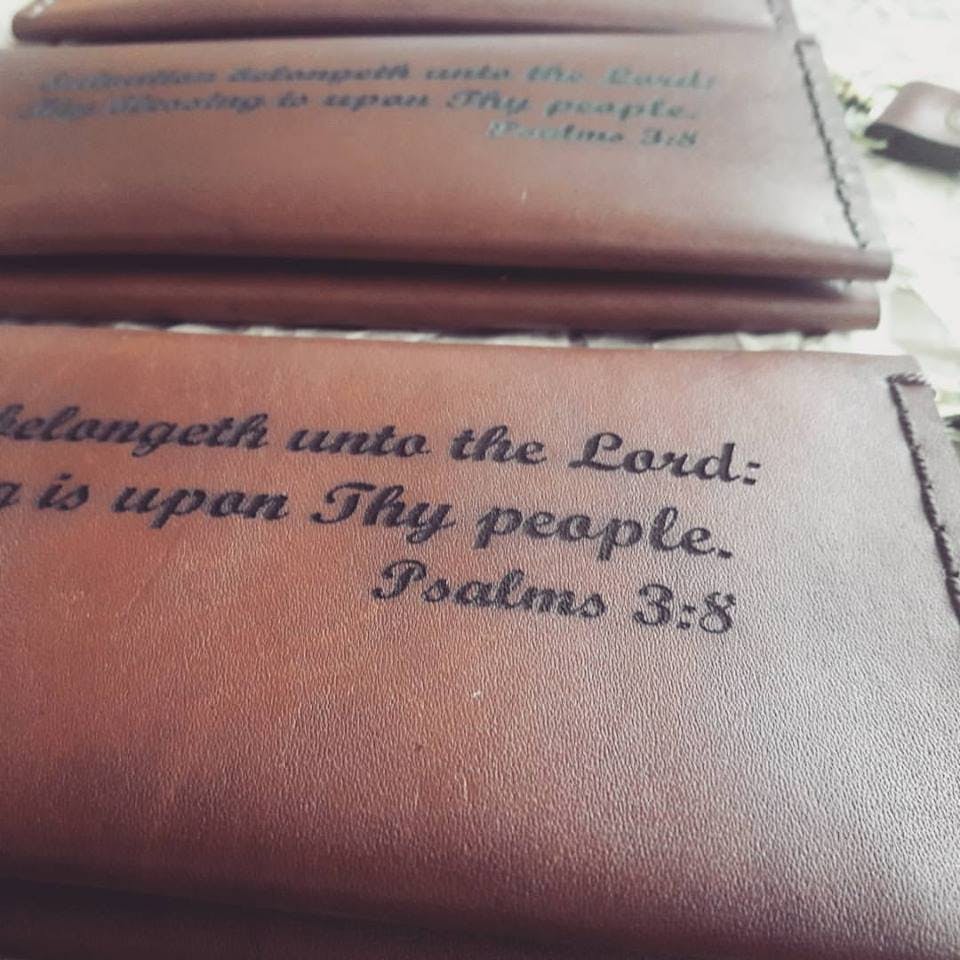 Salvation belongeth unto the Lord:
Thy blessing is upon Thy people.
Psalms 3:8
belongeth unto the Lord:
is upon Thy people.
Psalms 3:8